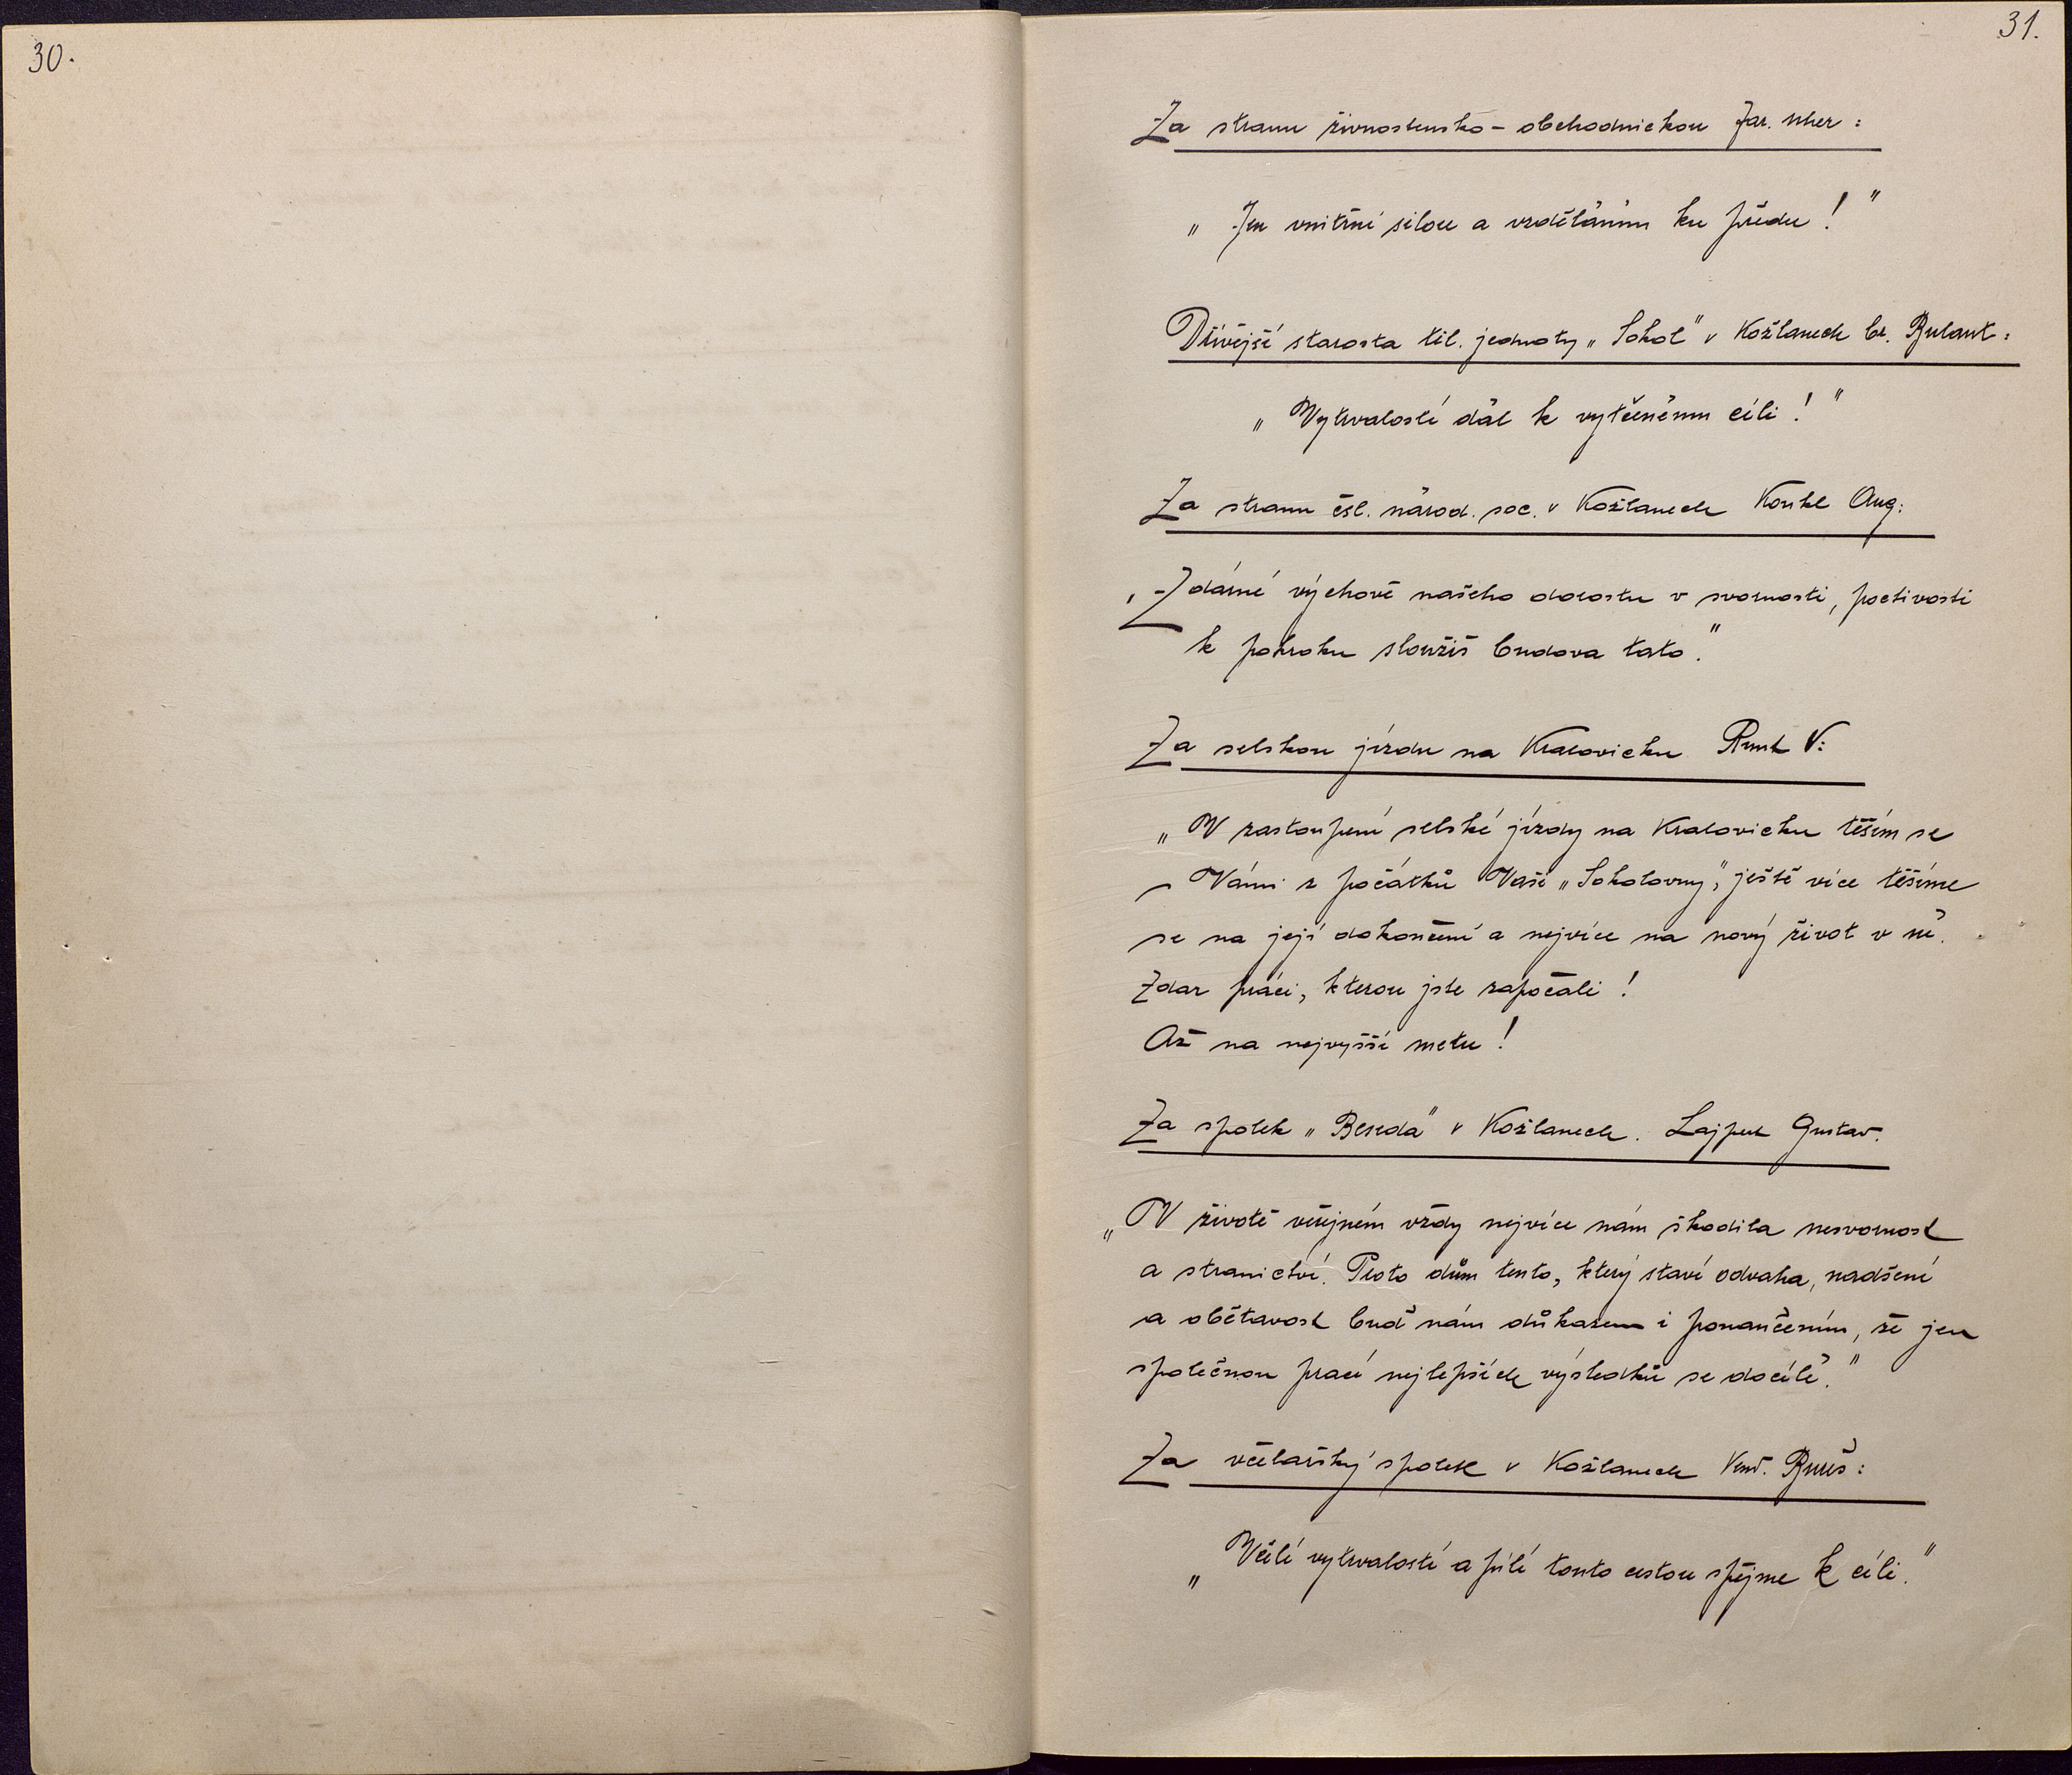 30.
31.
Za stranu živnostensko-obchodnickou Jar. Uher:
„Jen vnitřní silou a vzděláním ku předu!"
Dřívější starosta těl. jednoty „Sokol" v Kožlanech br. Bulant:
„Vytrvalostí dál k vytčenému cíli!"
Za stranu čsl. národ. soc. v Kožlanech Aug:
„Zdárné výchově našeho dorostu v svornosti, poctivosti
k pokroku sloužiž budova tato."
Za selskou jízdu na Kralovicku V:
„V zastoupení selské jízdy na Kralovicku těším se
s Vámi z počátků Vaší „Sokolovny", ještě více těšíme
se na její dokončení a nejvíce na nový život v ní.
Zdar práci, kterou jste započali!
Až na nejvyšší metu!
Za spolek „Beseda" v Kožlanech. Gustav.
„V životě veřejném vždy nejvíce nám škodila nesvornost
a stranictví. Proto dům tento, který staví odvaha, nadšení
a obětavost buď nám důkazem i ponaučením, že jen
společnou prací nejlepších výsledků se docílí."
Za včelařský spolek v Kožlanech
„Včelí vytrvalostí a pílí touto cestou spějme k cíli."